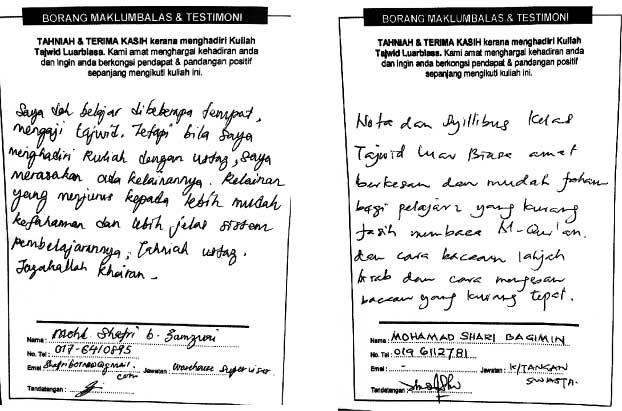 BORANG MAKLUMBALAS & TESTIMONI
TAHNIAH & TERIMA KASIH kerana menghadiri Kuliah
Tajwid Luarbiasa. Kami amat menghargai kehadiran anda
dan ingin anda berkongsi pendapat & pandangan positif
sepanjang mengikuti kuliah ini.
Saya dah belajar dibeberapa tempat,
mengaji tajwid. Tetapi bila saya
menghadiri kuliah dengan ustaz, saya
merasakan ada kelainannya. Kelainan
yang menjurus kepada lebih mudah
kefahaman dan lebih jelas sistem
pembelajarannya, Tahniah ustaz.
Jazahallah khairan -
Nama : Mohd Shafri b.
No. Tel : 017-6410895
Emel : Jawatan : Warehouse Supervisor.
com
Tandatangan :
BORANG MAKLUMBALAS & TESTIMONI
TAHNIAH & TERIMA KASIH kerana menghadiri Kuliah
Tajwid Luarbiasa. Kami amat menghargai kehadiran anda
dan ingin anda berkongsi pendapat & pandangan positif
sepanjang mengikuti kuliah ini.
Nota dan Syillibus Kelas
Tajwid Luar Biasa amat
berkesan dan mudah faham
bagi pelajar2 yang kurang
fasih membaca Al-Qur'an.
dan cara bacaan lahjah
Arab dan cara mengesan
bacaan yang kurang tepat.
Nama : MOHAMAD SHARI BAGIMIN
No. Tel : 019 6112781
Emel : - Jawatan : K/TANGAN
SWASTA.
Tandatangan :